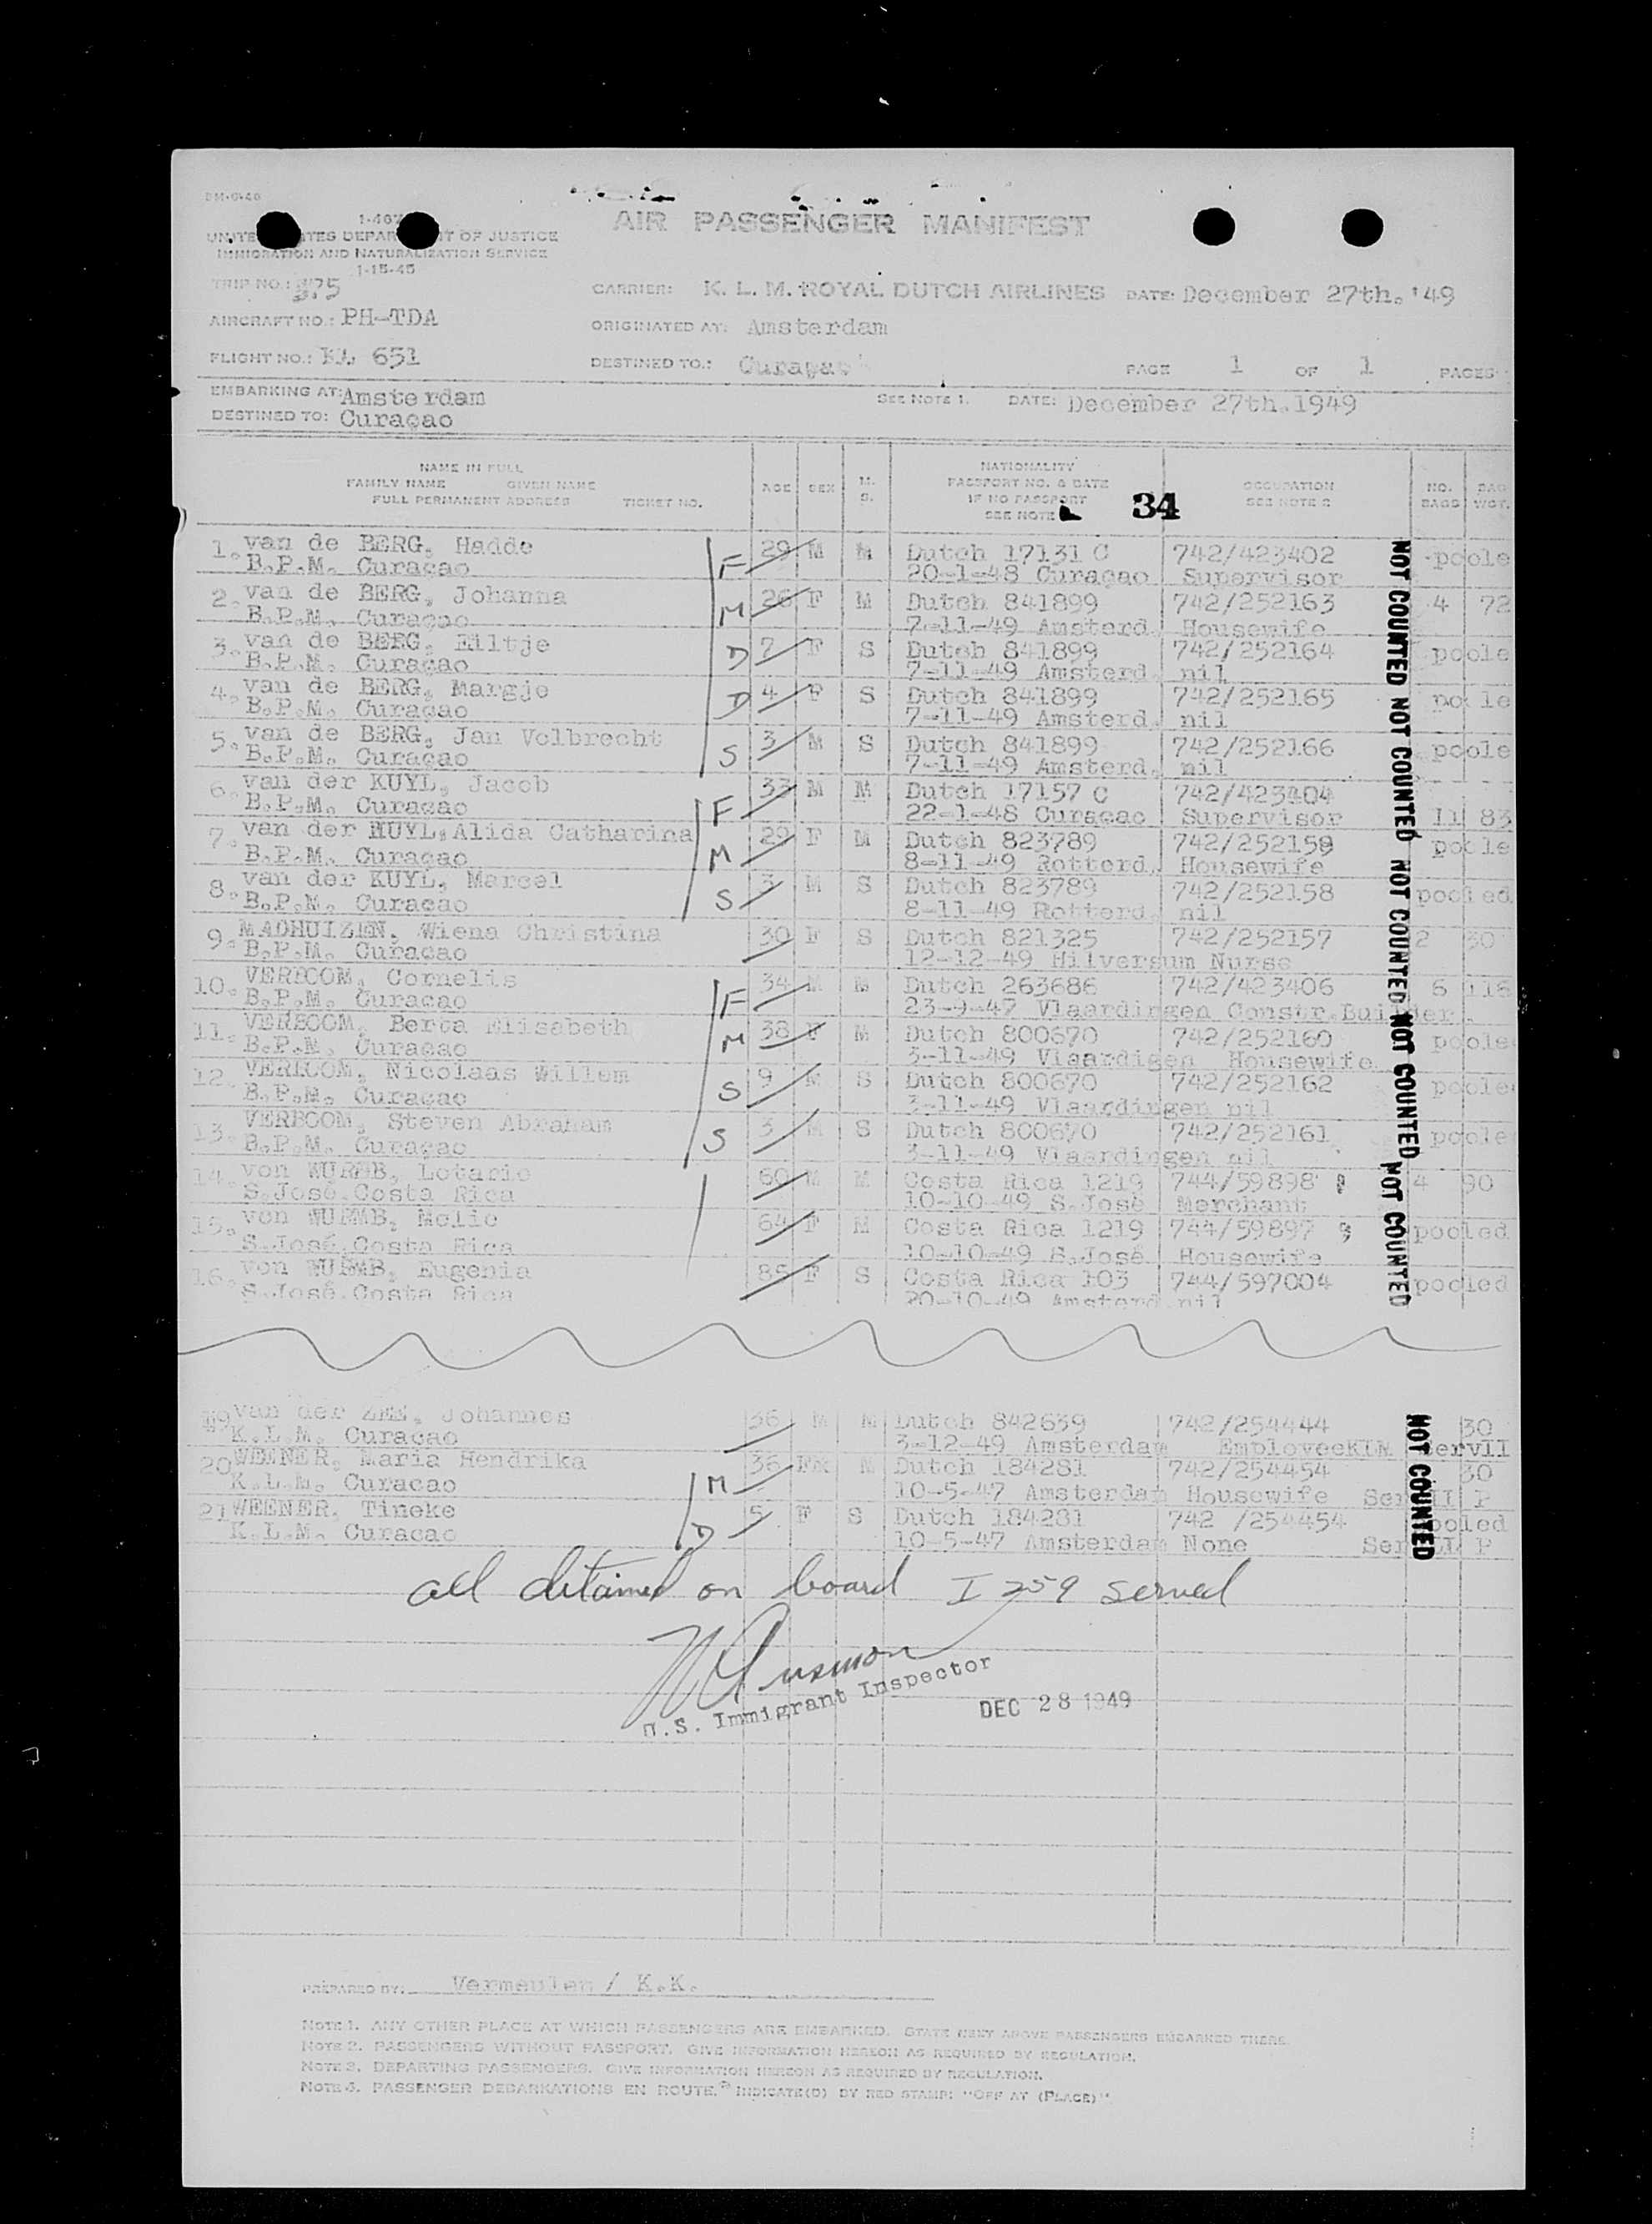 AIR PASSENGER MANIFEST
UNITED STATES DEPARTMENT OF JUSTICE
IMMIGRATION AND NATURALIZATION SERVICE
1-15-45
TRIP NO.: 375
CARRIER: K. L. M. ROYAL DUTCH AIRLINES DATE: December 27th. '49
AIRCRAFT NO.: PH-TDA
ORIGINATED AT: Amsterdam
FLIGHT NO.: KL 651
DESTINED TO.: Curaçao
PAGE 1 OF 1 PAGES
EMBARKING AT: Amsterdam
SEE NOTE 1. DATE: December 27th.1949
DESTINED TO: Curaçao
NAME IN FULL
FAMILY NAME GIVEN NAME
FULL PERMANENT ADDRESS TICKET NO.
AGE SEX M. S.
NATIONALITY
PASSPORT NO. & DATE
IF NO PASSPORT
SEE NOTE
34
OCCUPATION
SEE NOTE 2
NO. BAGS
BAG WGT.
1. van de BERG, Hadde F 29 M M Dutch 17131 C 742/423402 poole
B.P.M. Curaçao 20-1-48 Curaçao Supervisor
2. van de BERG, Johanna M 26 F M Dutch 841899 742/252163 4 72
B.P.M. Curaçao 7-11-49 Amsterd. Housewife
3. van de BERG, Eiltje D 7 F S Dutch 841899 742/252164 poole
B.P.M. Curaçao 7-11-49 Amsterd. nil
4. van de BERG, Margje D 4 F S Dutch 841899 742/252165 poole
B.P.M. Curaçao 7-11-49 Amsterd. nil
5. van de BERG, Jan Volbrecht S 3 M S Dutch 841899 742/252166 poole
B.P.M. Curaçao 7-11-49 Amsterd. nil
6. van der KUYL, Jacob F 33 M M Dutch 17157 C 742/423404
B.P.M. Curaçao 22-1-48 Curaçao Supervisor 11 83
7. van der KUYL, Alida Catharina M 29 F M Dutch 823789 742/252159 poole
B.P.M. Curaçao 8-11-49 Rotterd. Housewife
8. van der KUYL, Marcel S 3 M S Dutch 823789 742/252158 pooled
B.P.M. Curaçao 8-11-49 Rotterd. nil
9. MADHUIZEN, Wiena Christina 30 F S Dutch 821325 742/252157 2 30
B.P.M. Curaçao 12-12-49 Hilversum Nurse
10. VERBOOM, Cornelis F 34 M M Dutch 263686 742/423406 6 118
B.P.M. Curaçao 23-9-47 Vlaardingen Constr.Builder.
11. VERBOOM, Berta Elisabeth M 38 F M Dutch 800670 742/252160 poole
B.P.M. Curaçao 3-11-49 Vlaardigen Housewife
12. VERBOOM, Nicolaas Willem S 9 M S Dutch 800670 742/252162 poole
B.P.M. Curaçao 3-11-49 Vlaardingen nil
13. VERBOOM, Steven Abraham S 3 M S Dutch 800670 742/252161 poole
B.P.M. Curaçao 3-11-49 Vlaardingen nil
14. von WURMB, Lotario 60 M M Costa Rica 1219 744/59898 4 90
S.José.Costa Rica 10-10-49 S.José Merchant
15. von WURMB, Melie 64 F M Costa Rica 1219 744/59897 pooled
S.José.Costa Rica 10-10-49 S.José Housewife
16. von WURMB, Eugenia 85 F S Costa Rica 103 744/597004 pooled
S.José.Costa Rica 20-10-49 Amsterd. nil
NOT COUNTED NOT COUNTED NOT COUNTED NOT COUNTED NOT COUNTED
19 van der ZEE, Johannes 36 M M Dutch 842639 742/254444 30
K.L.M. Curacao 3-12-49 Amsterdam EmployeeKLM ServII
20 WEENER, Maria Hendrika M 36 Fx M Dutch 184281 742/254454 30
K.L.M. Curacao 10-5-47 Amsterdam Housewife Ser II P
21 WEENER, Tineke D 5 F S Dutch 184281 742 /254454 pooled
K.L.M. Curacao 10-5-47 Amsterdam None Ser II P
NOT COUNTED
all detained on board I 259 served
U.S. Immigrant Inspector
DEC 28 1949
PREPARED BY: Vermeulen / K.K.
NOTE 1. ANY OTHER PLACE AT WHICH PASSENGERS ARE EMBARKED. STATE NEXT ABOVE PASSENGERS EMBARKED THERE.
NOTE 2. PASSENGERS WITHOUT PASSPORT. GIVE INFORMATION HEREON AS REQUIRED BY REGULATION.
NOTE 3. DEPARTING PASSENGERS. GIVE INFORMATION HEREON AS REQUIRED BY REGULATION.
NOTE 4. PASSENGER DEBARKATIONS EN ROUTE. INDICATE(D) BY RED STAMP: "OFF AT (PLACE)".